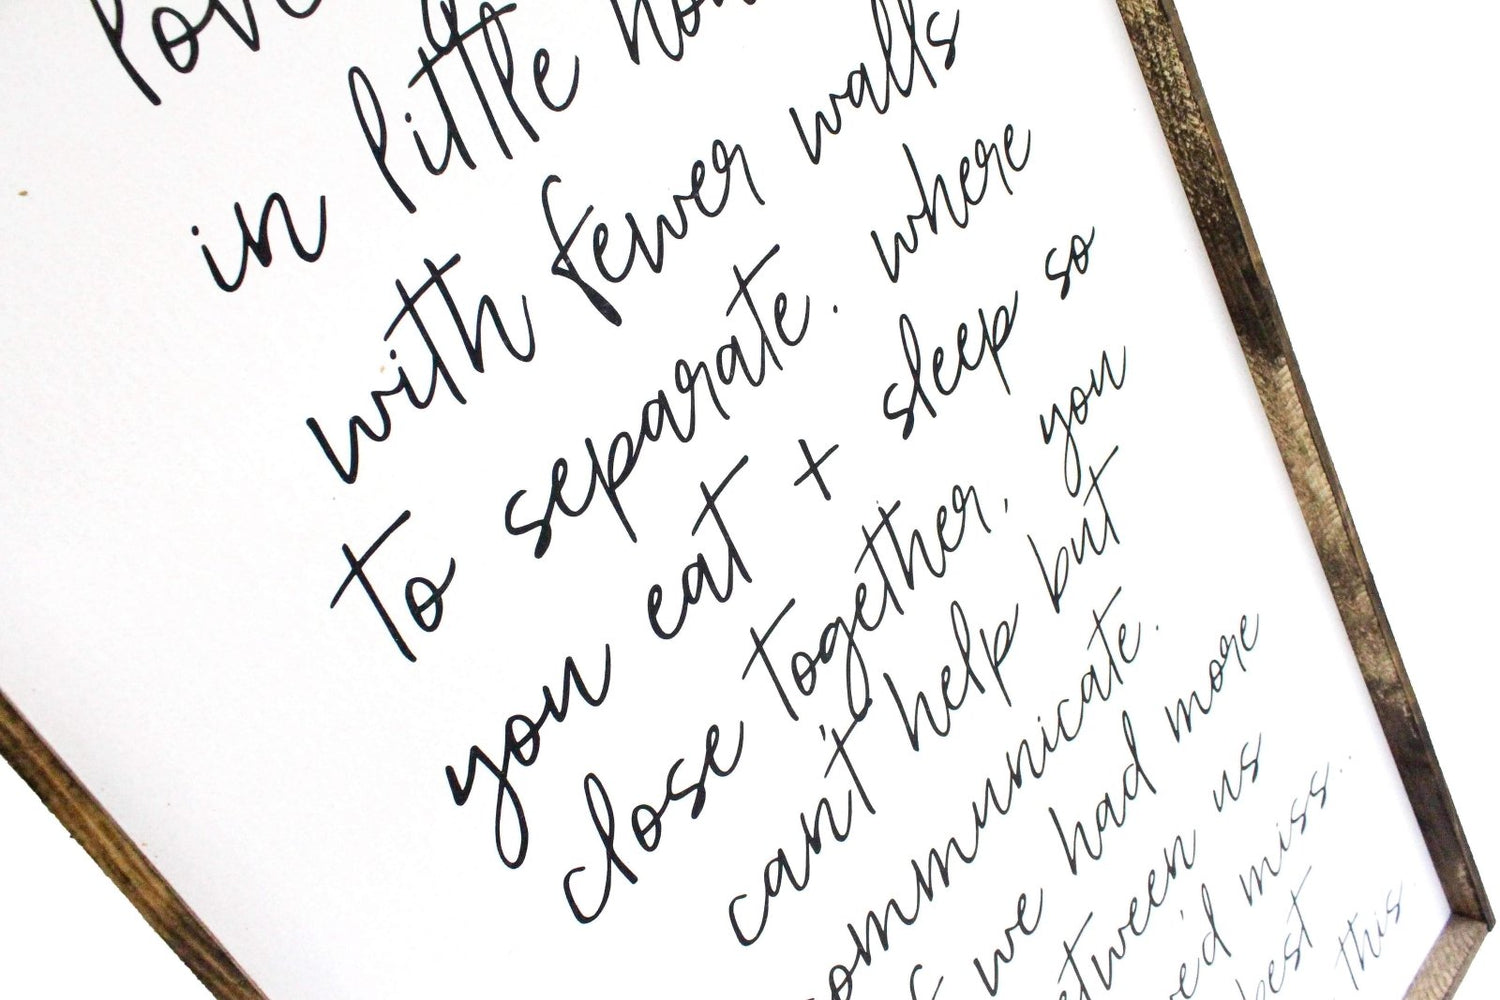 in little
with fewer walls
to separate. where
you eat + sleep so
close together, you
can't help but
communicate.
we had more
between us
miss..
best
this.